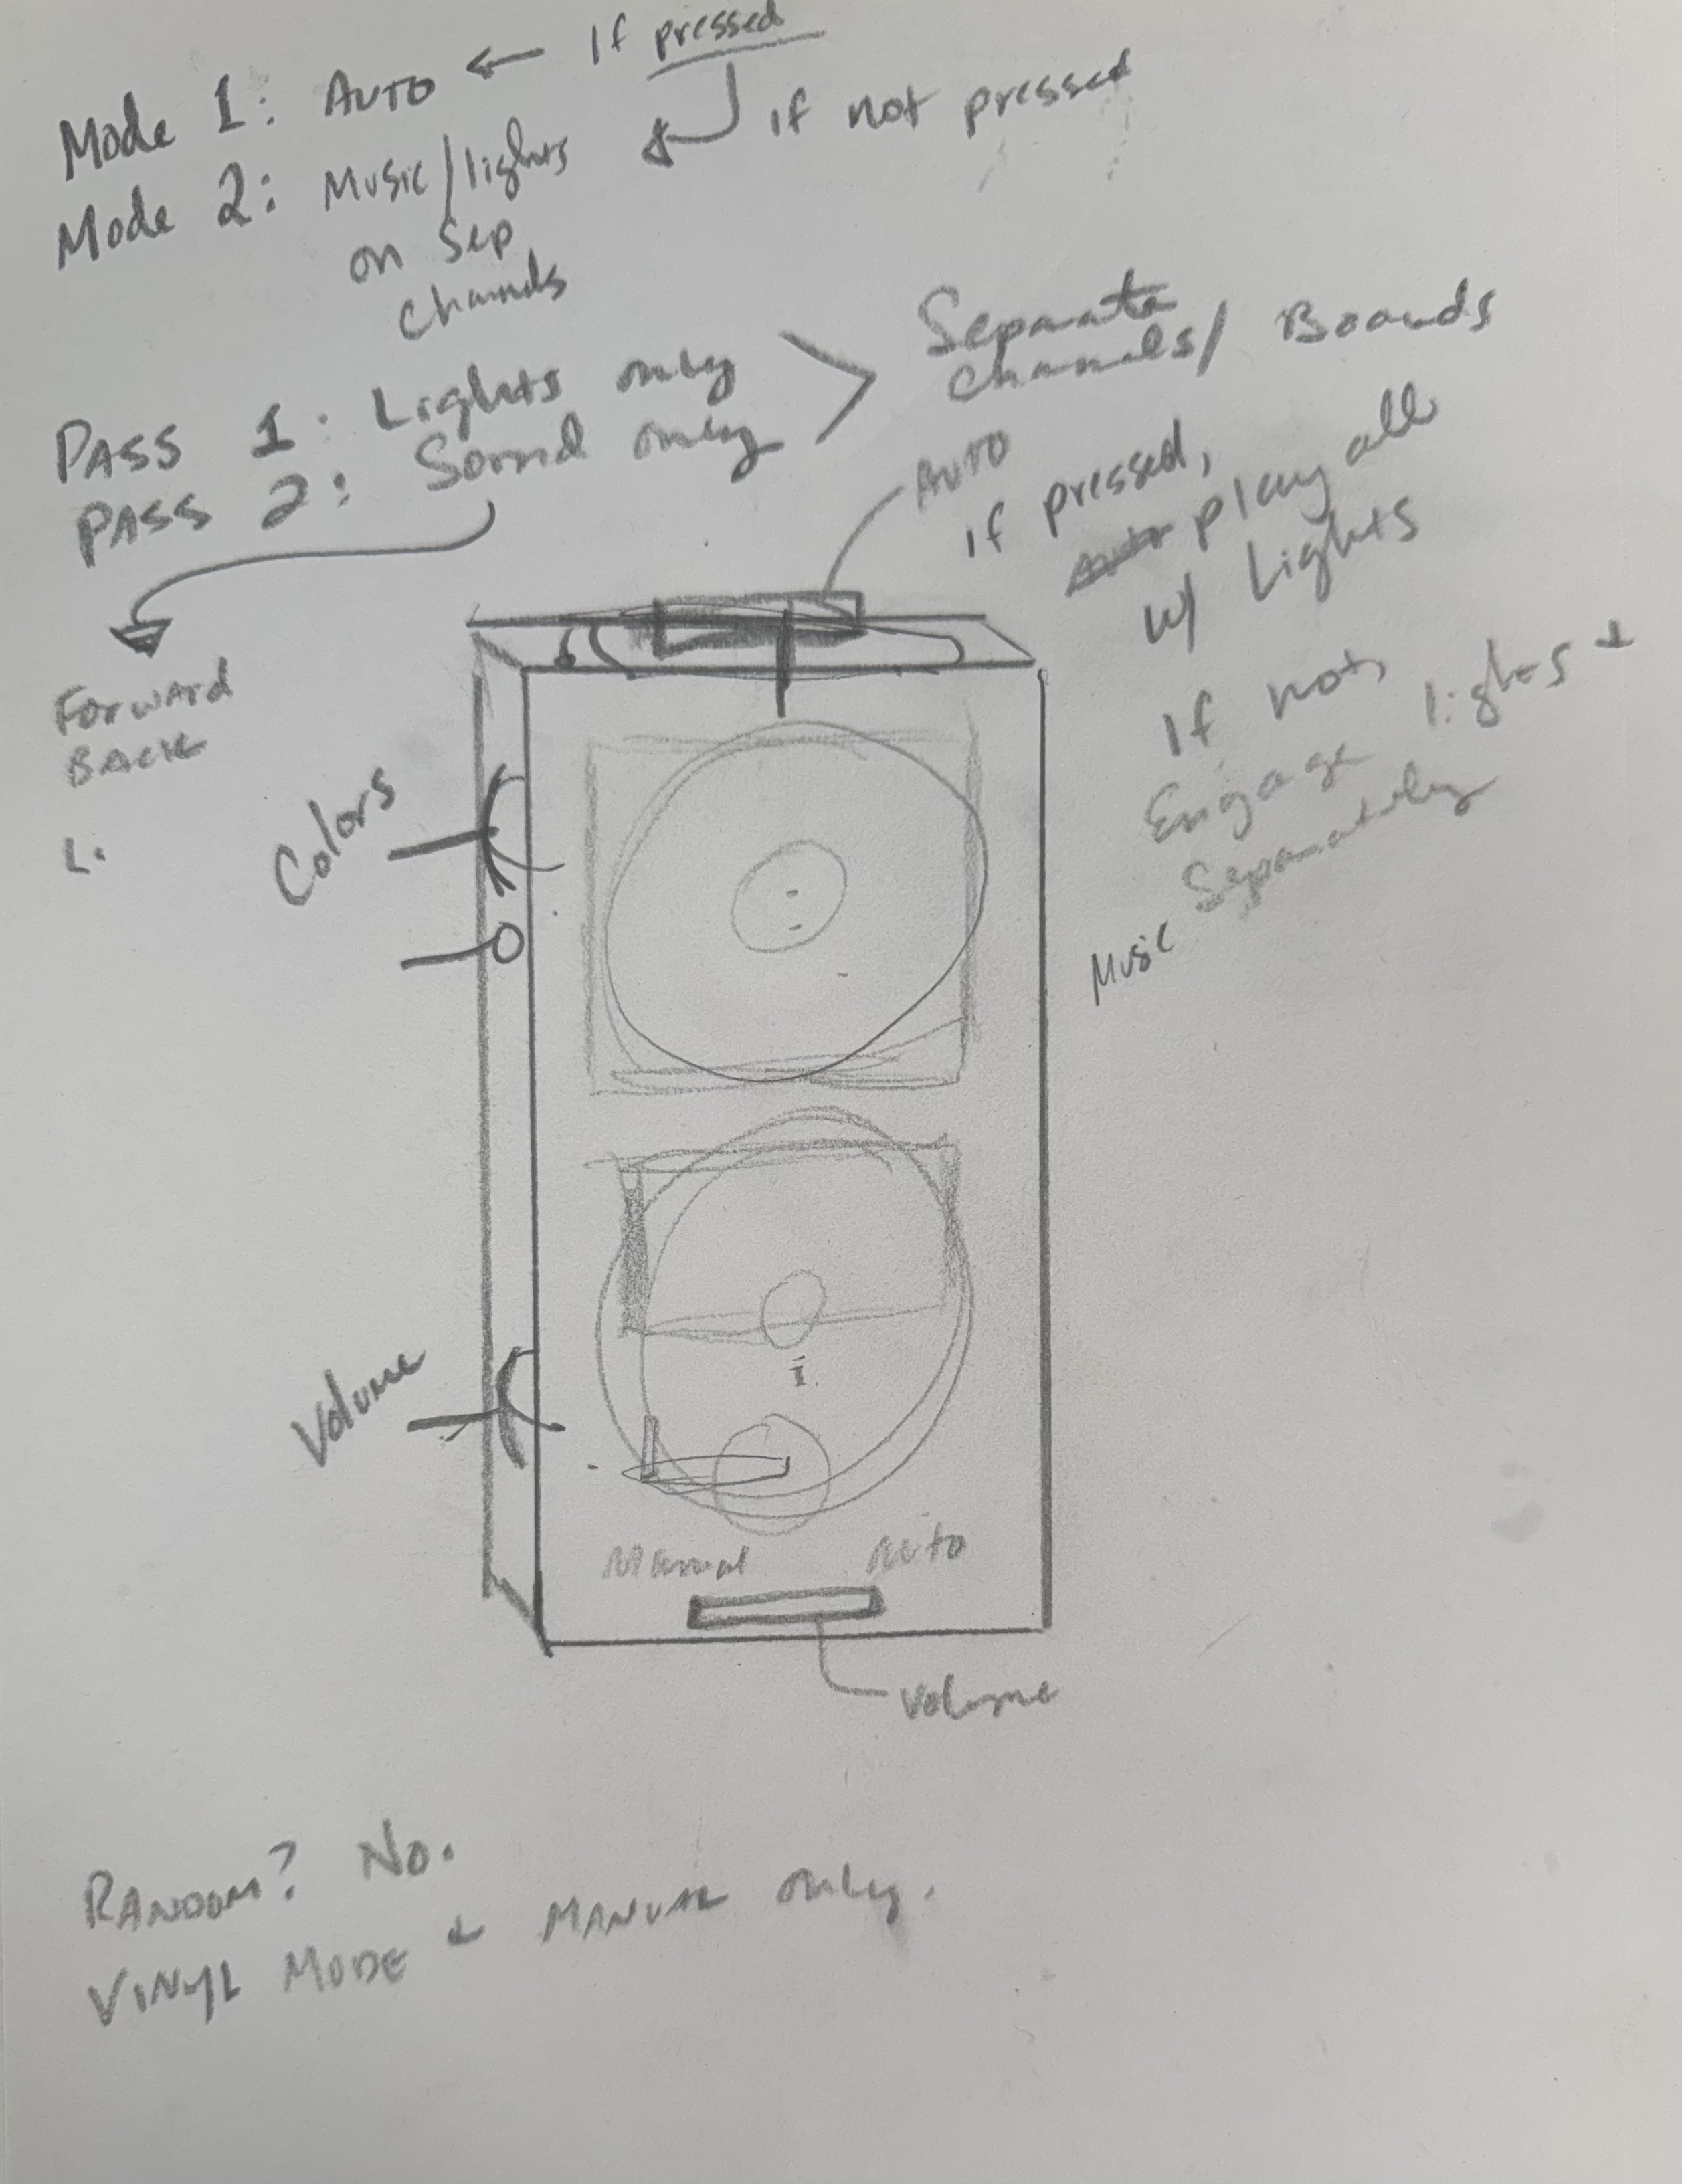 Mode 1: AUTO ← If pressed
Mode 2: Music/lights if not pressed
on Sep
Channels
PASS 1: Lights only
PASS 2: Sound only
Separate
Channels/ Boards
AUTO
If pressed,
Auto play all
w/ Lights
If not,
Engage lights +
Music Separately
Forward
BACK
L.
Colors
Volume
Manual Auto
Volume
RANDOM? No.
VINYL MODE + MANUAL only.